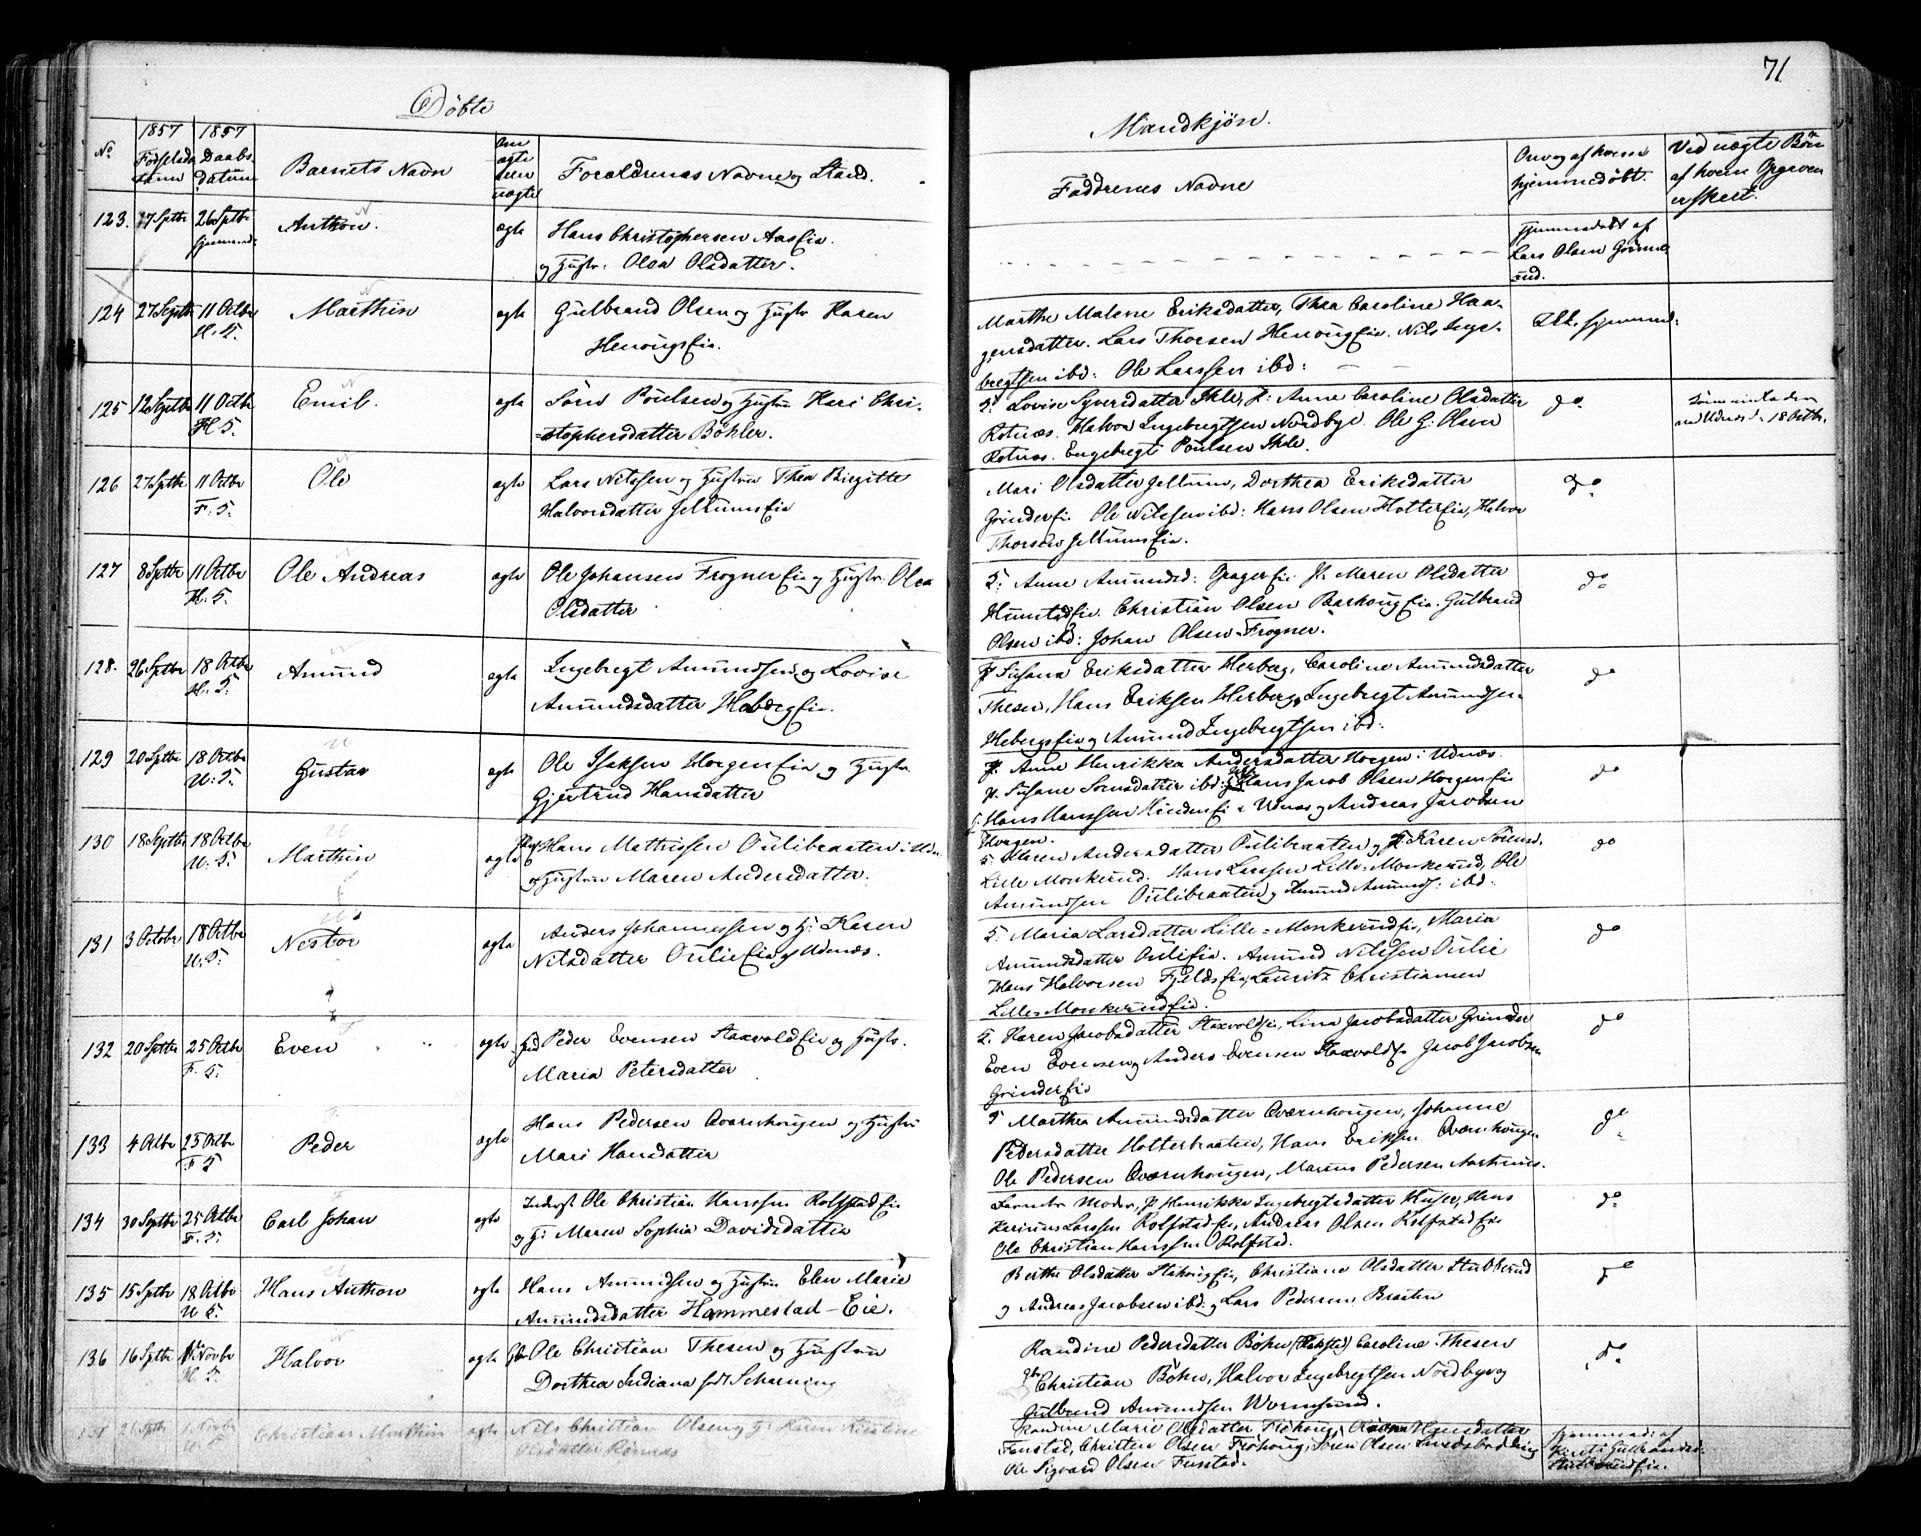 71
Döbte
Mandkjøn.
No 1857 Fødselsdatum 1857 Daabsdatum Barnets Navn Om ægte eller uægte Forældrenes Navne og Stand.
Faddrenes Navne Om og af hvem hjemmedøbt. Ved uægte Børn af hvem Opgaven er skeet.
123. 17 Septbr 26 Septbr hjemmed: Anthon. ægte Hans Christophersen Aas Eie
og Hustr: Olea Olsdatter.
hjemmedøbt af
Lars Olsen
124 27 Septbr 11 Octbr H. K. Marthin ægte Gulbrand Olsen og Hustr Karen
Henougs Eie.
Marthe Malene Eriksdatter, Thea Caroline Haa-
gensdatter. Lars Thorsen Henoug Eie. Nils Inge-
bregtsen ibd: Ole Larssen ibd:
Ikke hjemmed:
125 12 Septbr 11 Octbr H. K. Emil. ægte Søren Poulsen og Hustru Kari Chri-
=stophersdatter Böhler.
Lovise Syversdatter Ihle, P: Anne Caroline Olsdatter do
Rotnæs. Halvor Ingebregtsen Nordbye Ole G: Olsen
Rotnæs. Engebregt Poulsen Ihle.
18 Octbr.
126 27 Septbr 11 Octbr F. K. Ole ægte Lars Nilssen og Hustru Thea Birgitte
Halvorsdatter Jellums Eie
Mari Olsdatter Jellum, Dorthea Eriksdatter do
Grinder Ei. Ole Nilssen ibd: Hans Olsen Holter Eie, Halvor
Thorsen Jellums Eie.
127 8 Septbr 11 Octbr H. K. Ole Andreas ægte Ole Johansen Frogner Eie og Hustr: Olea
Olsdatter
K: Anne Amundsd: Grager Eie P: Maren Olsdatter do
Hunstad Eie. Christian Olsen Barhoug Eie. Gulbrand
Olsen ibd: Johan Olsen Frogner.
128. 26 Septbr 18 Octbr H. K. Amund ægte Ingebregt Amundsen og Lovise
Amundsdatter Heberg Eie.
P Susana Eriksdatter Herberg, Caroline Amundsdatter do
Thesen, Hans Eriksen Herberg, Ingebregt Amundsen
Hebergs Eie og Amund Ingebregtsen ibd:
129 20 Septbr 18 Octbr U. K. Gustav ægte Ole Isaksen Horgen Eie og Hustr
Gjertrud Hansdatter
P. Anne Henrikka Andersdatter Horgen i Udnæs. do
P. Susane Sørnsdatter ibd: Hans Jacob Olsen Horgen Eie
Hans Hanssen Eie i Udnæs og Andreas Jacobsen
Horgen.
130 18 Septbr 18 Octbr U. K. Marthin ægte Hans Mathissen Oulibraaten i Udn.
og Hustru Maren Andersdatter.
K. Maren Andersdatter Oulibraaten og P: Karen Sørensd. do
Lille Monkerud. Hans Larssen Lille=Monkerud, Ole
Amundsen Oulibraaten og Amund Amunds: ibd:
131 3 Octobr 18 Octbr U. K. Nestor ægte Anders Johannessen og H: Karen
Nilsdatter Oulie Eie i Udnæs.
K: Maria Larsdatter Lille=Monkerud Ei, Maria do
Amundsdatter Ouli Eie. Amund Nilssen Oulie
Hans Halvorsen Fjelds Eie, Lauritz Christiansen
Lille Monkerud Eie.
132 20 Septbr 25 Octbr F. K. Even ægte Peder Evensen Haxvold Eie og Hustr.
Maria Petersdatter
K. Karen Jacobsdatter Haxvold Ei, Lina Jacobsdatter Grinder do
Even Evensen og Anders Evensen Haxvold Jacob Jacobsen
Grinder Eie
133 4 Octbr 25 Octbr F K Peder ægte Hans Pedersen Qværnhougen og Hustru
Mari Hansdatter
Marthea Amundsdatter Qværnhougen, Johanne do
Pedersdatter Holterbraaten, Hans Eriksen Qværnhougen
Ole Pedersen Qværnhougen, Marius Pedersen
134 30 Septbr 25 Octbr F. K. Carl Johan ægte Inderst Ole Christian Hanssen Rolfstad Eie
og H: Maren Sophia Davidsdatter
Barnets Moder, P Henrikka Ingebregtsdatter Huser, Hans do
Larssen Rolfstad Eie, Andreas Olsen Rolfstad Eie
Ole Christian Hanssen Rolfstad.
135 15 Septbr 18 Octbr U K. Hans Anthon ægte Hans Amundsen og Hustru Elen Marie
Amundsdatter Hammestad-Eie.
Berthe Olsdatter Eie, Christiane Olsdatter Stubberud do
og Andreas Jacobsen ibd: og Lars Pedersen Braaten
136 16 Septbr 1 Novbr H. K. Halvor ægte Ole Christian Thesen og Hustru
Dorthea Indiana født Scharning
Randine Pedersdatter Böhn Caroline Thesen do
Christian Böhn, Halvor Ingebregtsen Nordbye og
Gulbrand Amundsen Wormsund.
137 26 Septbr 1 Novbr U. K. Christian Marthin ægte Nils Christian Olsen og H: Karen Kirstine
Olsdatter
Randine Marie Olsdatter Frøhoug, Hansdatter
Funstad, Christen Olsen Frøhoug, Søren Olsen
Ole Sigvard Olsen Funstad.
hjemmed: af
Gulbrandsd:
Eie.